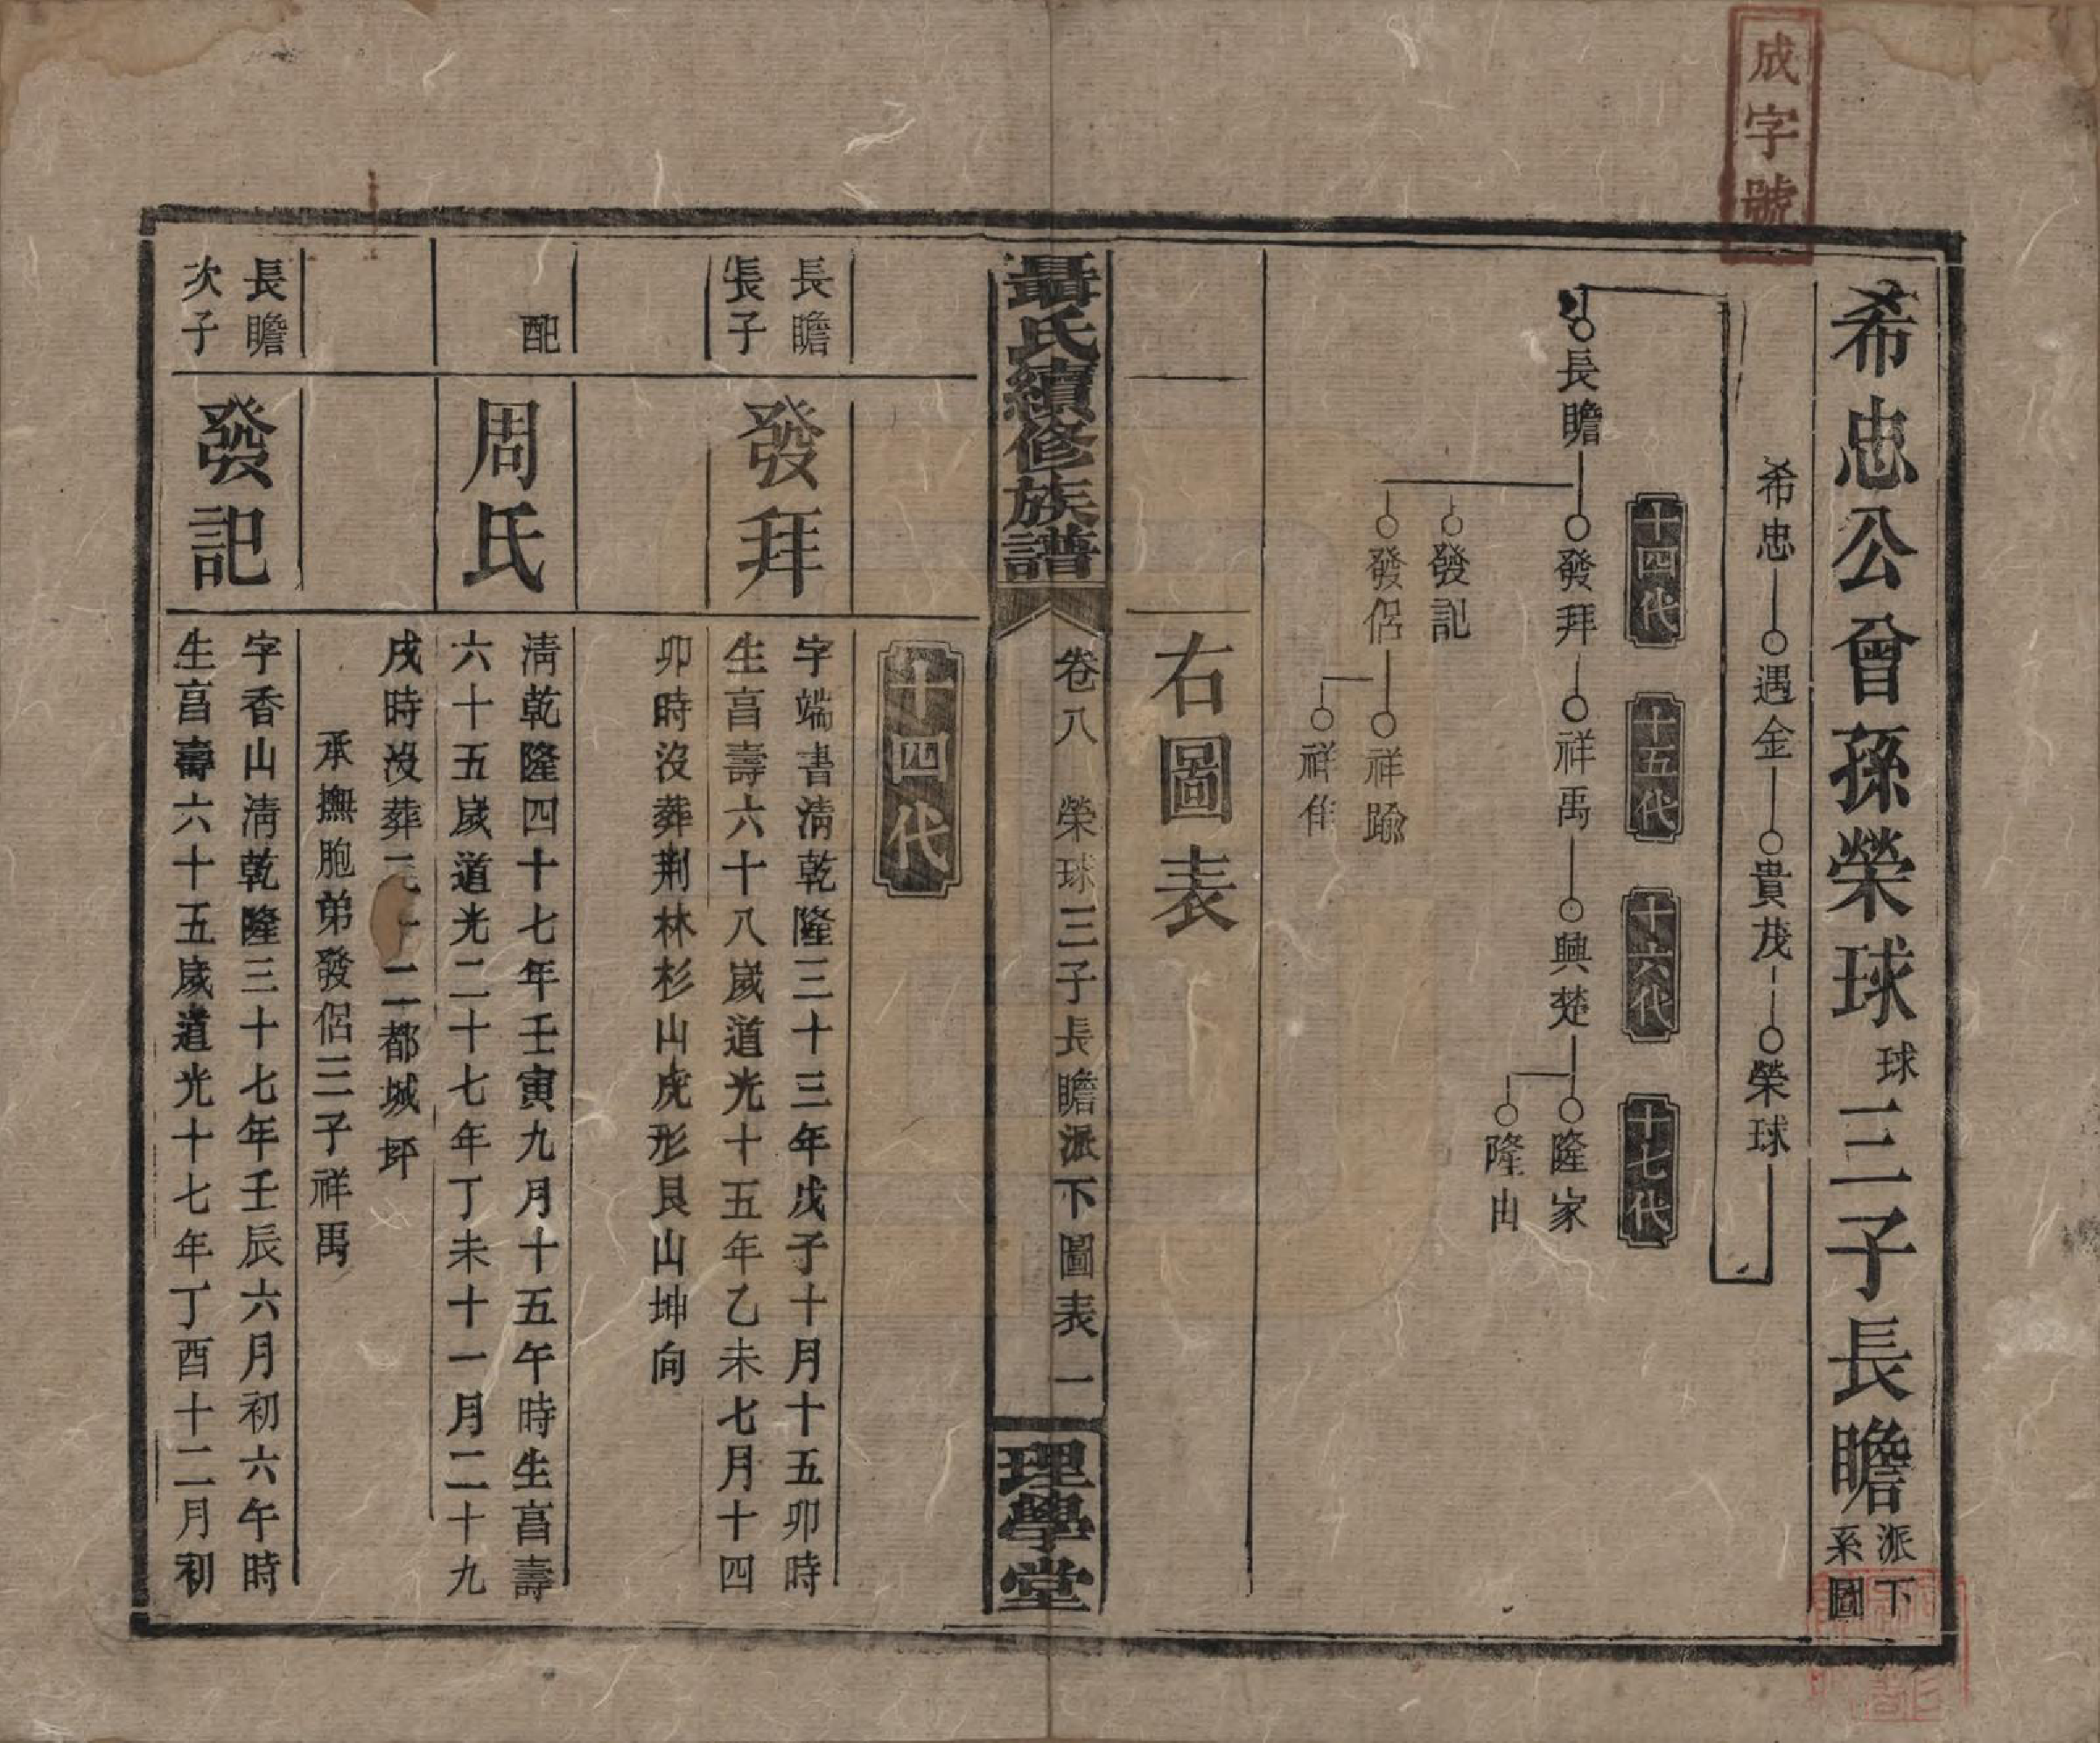 成字號
希忠公曾孫榮球球三子長瞻派下系圖
希忠 遇金 貴茂 榮球
十四代 十五代 十六代 十七代
長瞻 發拜 祥禹 興楚 隆家
隆由
發記
發侶 祥踰
祥隹
右圖表
聶氏續修族譜 卷八 榮球三子長瞻派下圖表 一 理學堂
十四代
長瞻長子 發拜
字端書清乾隆三十三年戊子十月十五卯時
生享壽六十八歲道光十五年乙未七月十四
卯時沒葬荆林杉山虎形艮山坤向
配 周氏
清乾隆四十七年壬寅九月十五午時生享壽
六十五歲道光二十七年丁未十一月二十九
戌時沒葬 二都城坪
承撫胞弟發侶三子祥禹
長瞻次子 發記
字香山清乾隆三十七年壬辰六月初六午時
生享壽六十五歲道光十七年丁酉十二月初